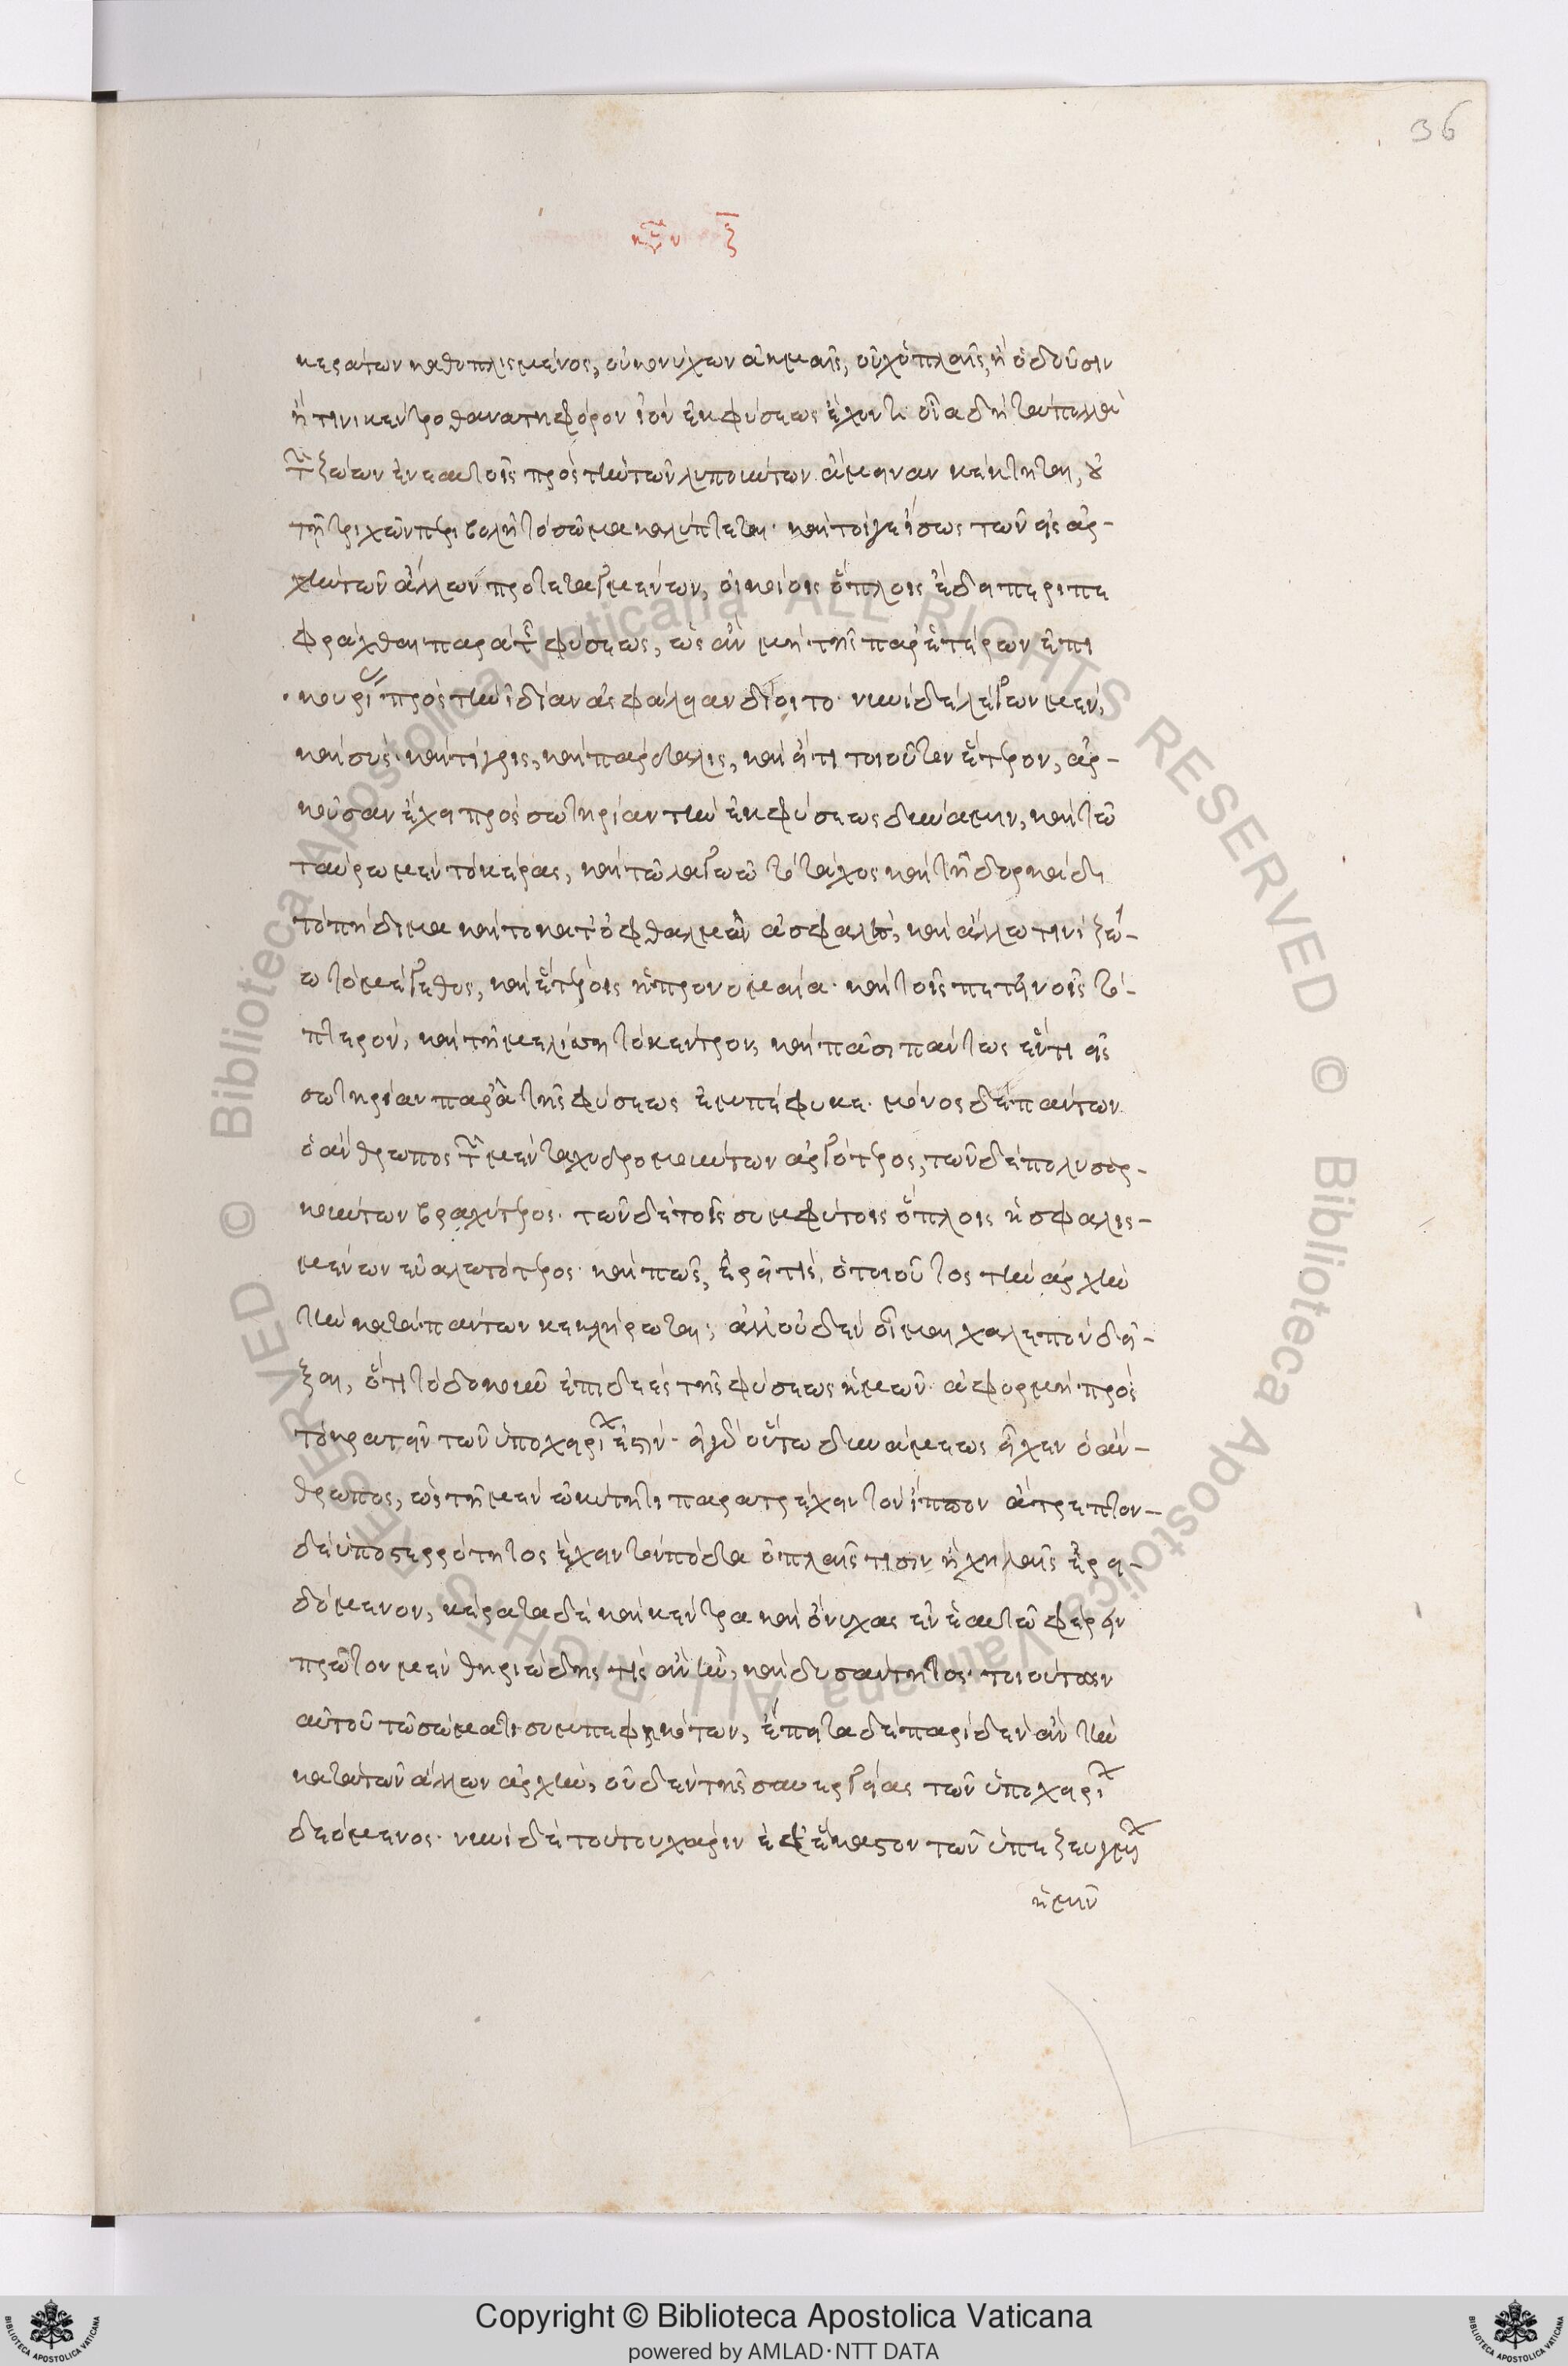 36
ζ̅
κεράτων καθωπλισμένος, οὐκ ὀνύχων ἀκμαῖς, οὐχ ὁπλαῖς, ἢ ὀδοῦσιν
ἤ τινι κέντρω θανατηφόρον ἰὸν ἐκ φύσεως ἔχοντι. οἷα δὴ τὰ πολλὰ
τῶν ζώων ἐν ἑαυτοῖς πρὸς τὴν τῶν λυπούντων ἄμυναν κέκτηται, οὐ
τῆ τριχῶν περιβολῆ τὸ σῶμα καλύπτεται. καίτοιγε ἴσως τῶν εἰς ἀρ-
χὴν τῶν ἄλλων προτεταγμένων, οἰκείοις ὅπλοις ἔδει περιπε
φράχθαι παρὰ τῆς φύσεως, ὡς ἂν μὴ τῆς παρ' ἑτέρων ἐπι
κουρίας πρὸς τὴν ἰδίαν ἀσφάλειαν δέοιτο. νυνὶ δὲ λέων μὲν,
καὶ σῦς. καὶ τίγρις, καὶ πάρδαλις, καὶ εἴ τι τοιοῦτον ἕτερον, ἀρ-
κοῦσαν ἔχει πρὸς σωτηρίαν τὴν ἐκ φύσεως δύναμιν, καὶ τῶ
ταύρω μὲν τὸ κέρας, καὶ τῶ λαγωῶ τὸ τάχος καὶ τῆ δορκάδι
τὸ πήδημα καὶ τὸ κατ' ὀφθαλμῶν ἀσφαλὲς, καὶ ἄλλω τινὶ ζώ-
ω τὸ μέγεθος, καὶ ἑτέροις ἡ προνομαία. καὶ τοῖς πετεινοῖς τὸ
πτερὸν, καὶ τῆ μελίσση τὸ κέντρον, καὶ πᾶσι πάντως ἕν τι εἰς
σωτηρίαν παρὰ τῆς φύσεως ἐμπέφυκε. μόνος δὲ πάντων
ὁ ἄνθρωπος τῶν μὲν ταχυδρομούντων ἀργότερος, τῶν δὲ πολυσαρ-
κούντων βραχύτερος. τῶν δὲ τοῖς συμφύτοις ὅπλοις ἠσφαλισ-
μένων εὐαλωτότερος. καὶ πῶς, ἐρεῖ τις, ὁ τοιοῦτος τὴν ἀρχὴν
τὴν κατὰ πάντων κεκλήρωται; ἀλλ' οὐδὲν οἶμαι χαλεπὸν δεῖ-
ξαι, ὅτι τὸ δοκοῦν ἐπιδεὲς τῆς φύσεως ἡμῶν. ἀφορμὴ πρὸς
τὸ κρατεῖν τῶν ὑποχειρίων ἐστίν. εἰ γὰρ οὕτω δυνάμεως εἶχεν ὁ ἄν-
θρωπος, ὡς τῆ μὲν ὠκύτητι παρατρέχειν τὸν ἵππον ἄτρεπτον-
δὲ ὑπὸ στερρότητος ἔχειν τὸν πόδα ὁπλαῖς τισὶν ἢ χηλαῖς ἐρει-
δόμενον, κέρατα δὲ καὶ κέντρα καὶ ὄνυχας ἐν ἑαυτῶ φέρειν
πρῶτον μὲν θηριώδης τὶς ἂν ἦν, καὶ δυσάντητος. τοιούτων
αὐτοῦ τῶ σώματι συμπεφυκότων, ἔπειτα δὲ παρίδεν ἂν τὴν
κατὰ τῶν ἄλλων ἀρχὴν, οὐδὲν τῆς συνεργείας τῶν ὑποχειρίων
δεόμενος. νυνὶ δὲ τούτου χάριν ἐφ' ἕκαστον τῶν ὑπεζευγμένων
ἡμῖν
Copyright © Biblioteca Apostolica Vaticana
powered by AMLAD·NTT DATA